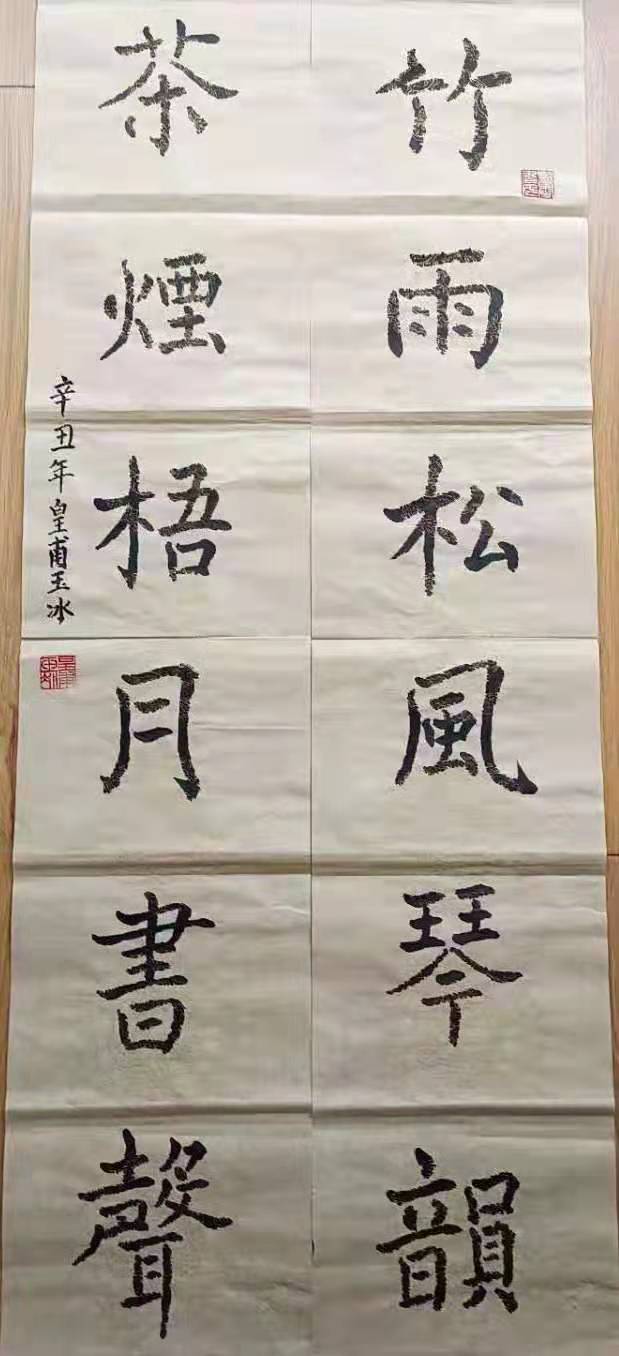 竹雨松風琴韻
茶煙梧月書聲
辛丑年皇甫玉冰